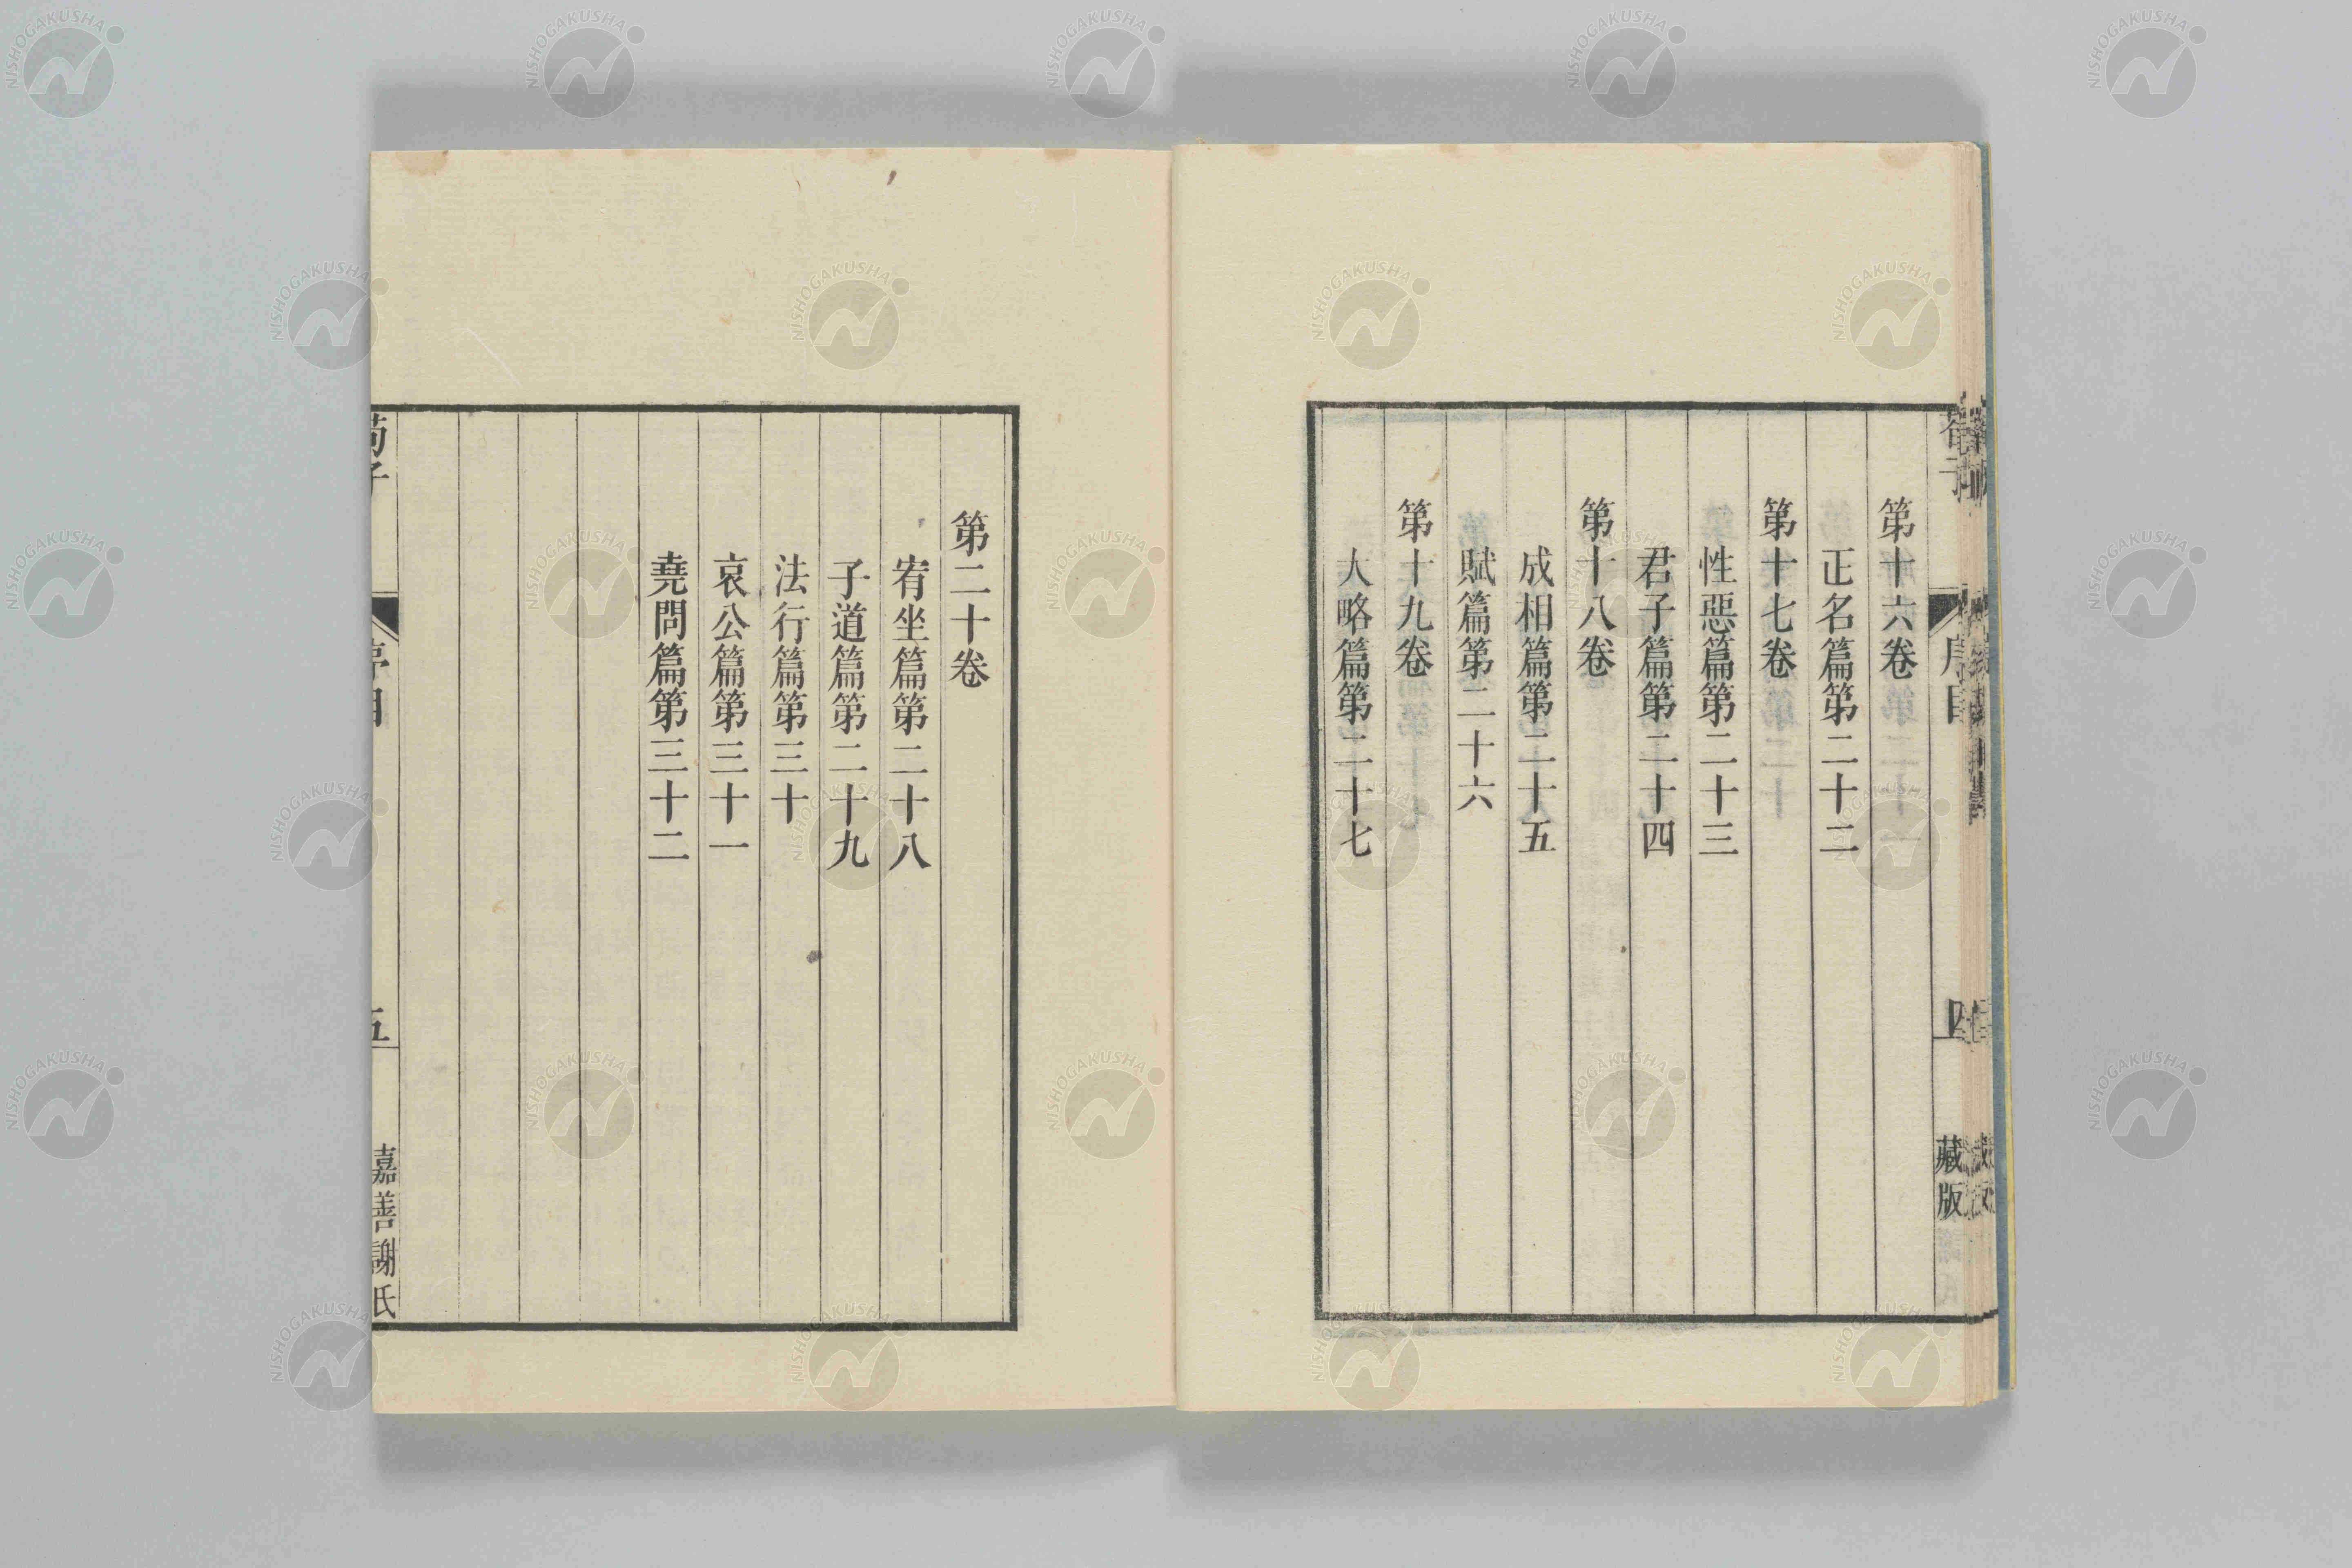 荀子
序目
四
藏版
第十六卷
正名篇第二十二
第十七卷
性惡篇第二十三
君子篇第二十四
第十八卷
成相篇第二十五
賦篇第二十六
第十九卷
大略篇第二十七
第二十卷
宥坐篇第二十八
子道篇第二十九
法行篇第三十
哀公篇第三十一
堯問篇第三十二
荀子
序目
五
嘉善謝氏
NISHOGAKUSHA